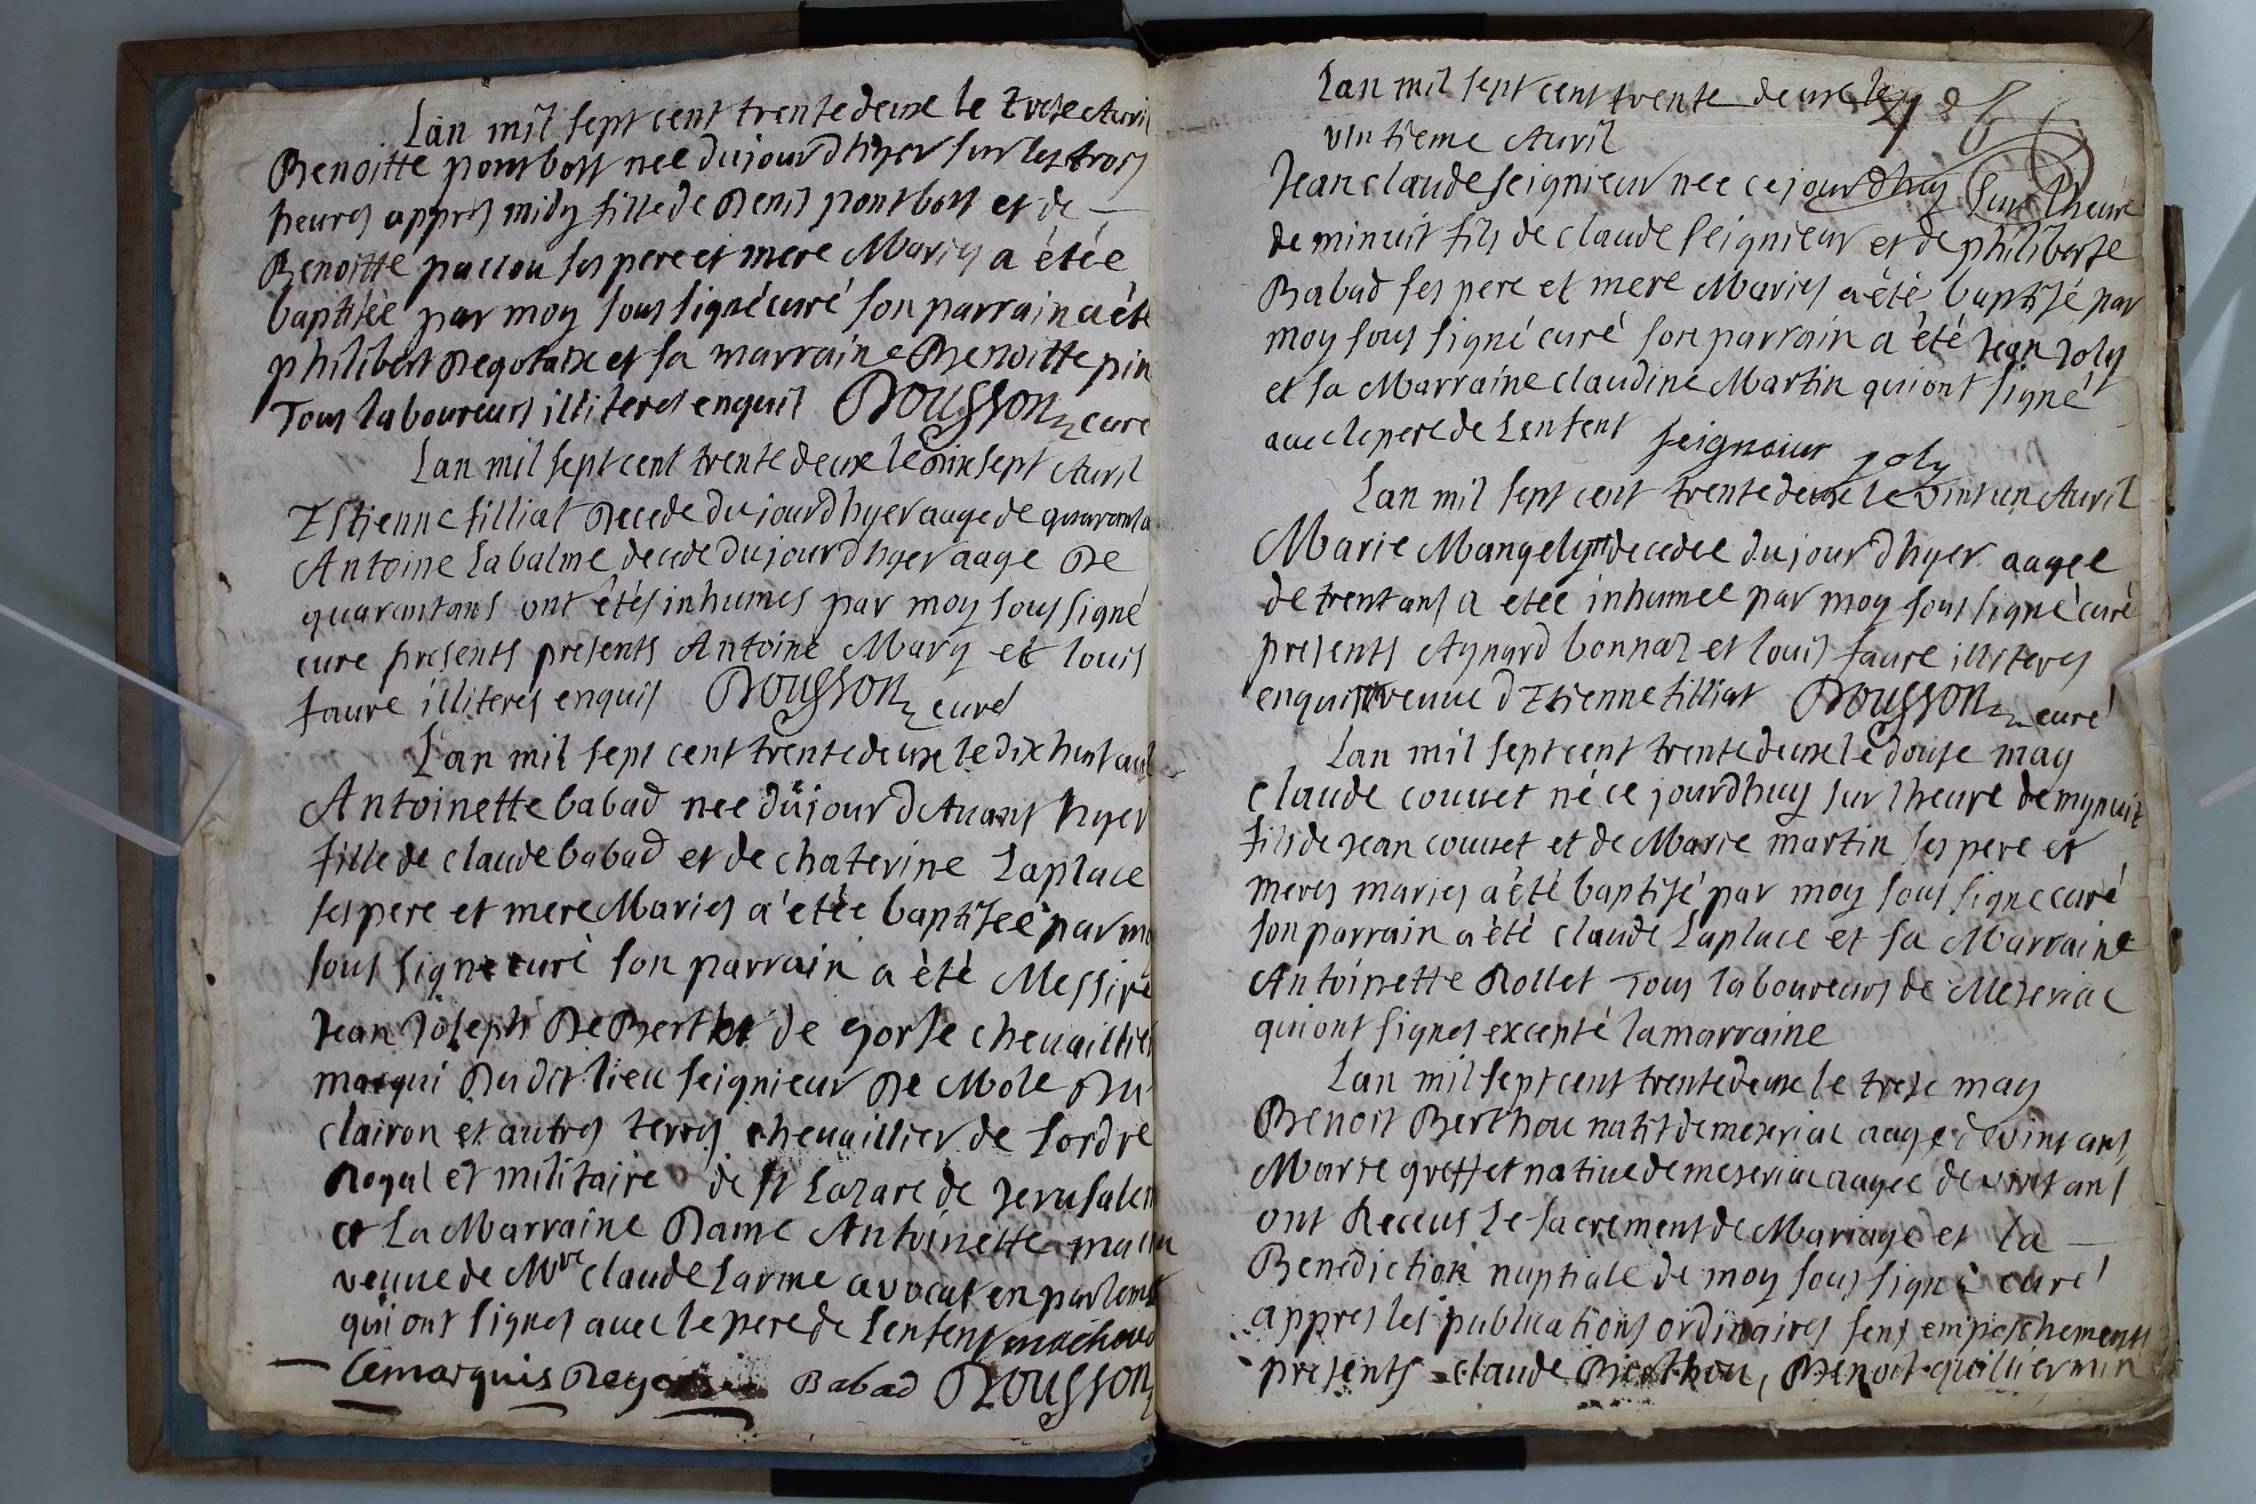 Lan mil sept cent trente deux le trese Avril
Benoitte pontboss nee du jour dhyer sur les trois
heures appres midy fille de Denis pontboss et de
Benoitte pacıou ses pere et mere Maries a étée
baptisée par moy sous signé curé son parrain a été
philibert et sa marraine Benoitte pin
Tous laboureurs illiteres enquis Rousson curé
Lan mil sept cent trente deux le dix sept Avril
Estienne filliat decede du jour dhyer aage de quarant
Antoine Labalme decede du jour dhyer aage De
quarantans ont étés inhumes par moy sous signé
cure presents presents Antoine Mary et louis
faure illiteres enquis Rousson curé
Lan mil sept cent trente deux le dix huit avril
Antoinette babad nee du jour dAvant hyer
fille de claude babad et de chaterine Laplace
ses pere et mere Maries a étée baptisée par moy
sous signé curé son parrain a été Messire
Jean Joseph De Berthet de gorse chevaillier
marqui Du dit lieu seignieur De Mole Du
clairon et autres terres chevaillier de Lordre
Royal et militaire de st Lazare de Jerusalem
et La Marraine Dame Antoinette
veuve de Mre claude Larme avocat en parlemt
qui ont signes avec le pere de Lenfent
Lemarquis Babad Rousson
Lan mil sept cent trente deux le
vintieme Avril
Jean claude seignieur nee ce jourdhuy sur Lheure
de minuit fils de claude seignieur et de philiberte
Babad ses pere et mere Maries a été baptisé par
moy sous signé curé son parrain a été Jean Joly
et sa Marraine claudine Martin qui ont signé
avec le pere de Lenfent seigneiur joly
Lan mil sept cent trente deux le vint un Avril
Marie Mangelyn decedee du jour dhyer aagee
de trent ans a etée inhumee par moy sous signé curé
presents Aynard bonnaz et louis faure illiteres
enquis veuve dEtienne filliat Rousson curé
Lan mil sept cent trente deux le douse may
claude couuet né ce jourdhuy sur lheure de mynuit
fils de Jean couuet et de Marie martin ses pere et
meres maries a été baptisé par moy sous signe curé
son parrain a été claude Laplace et sa Marraine
Antoinette Rollet Tous laboureurs de Meseriac
qui ont signes excepté la marraine
Lan mil sept cent trente deux le trese may
Benoit Berthou natif de meseriac aage de vint ans
Marie greffet native de meseriac aagee de vint ans
ont Receus Le sacrement de Mariage et la
Benediction nuptiale de moy sous signé curé
appres les publications ordinaires sens empeschements
presents claude Berthou, Benoit guilliermin